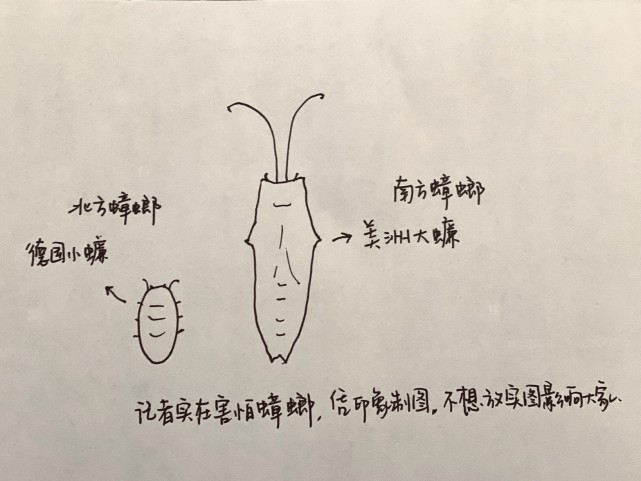 北方蟑螂
德国小蠊
南方蟑螂
美洲大蠊
记者实在害怕蟑螂，凭印象制图。不想放实图影响大家。